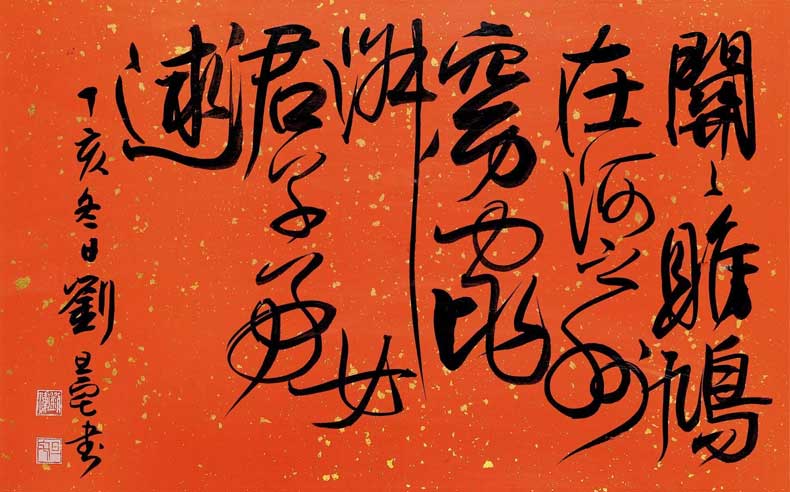 關〻雎鳩
在河之洲
窈窕
淑女
君子好
逑
丁亥冬日劉旦宅书